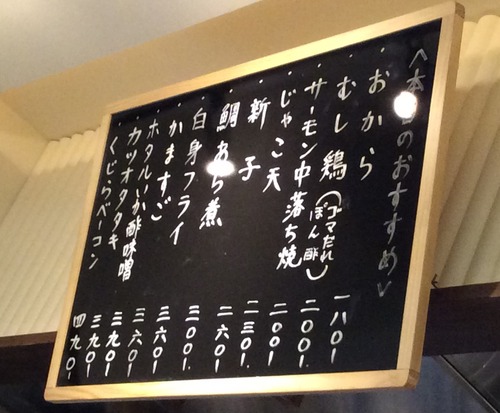 〈本日のおすすめ〉
・おから 一八〇ー
・むし鶏(ゴマだれ
ぽん酢) 二〇〇ー
・サーモン中落ち焼 二〇〇ー
・じゃこ天 二三〇ー
・新子 二六〇ー
・鯛あら煮 三〇〇ー
・白身フライ 三六〇ー
・かますご 三六〇ー
・ホタルいか酢味噌 三九〇ー
・カツオタタキ 三九〇ー
・くじらベーコン 四九〇ー